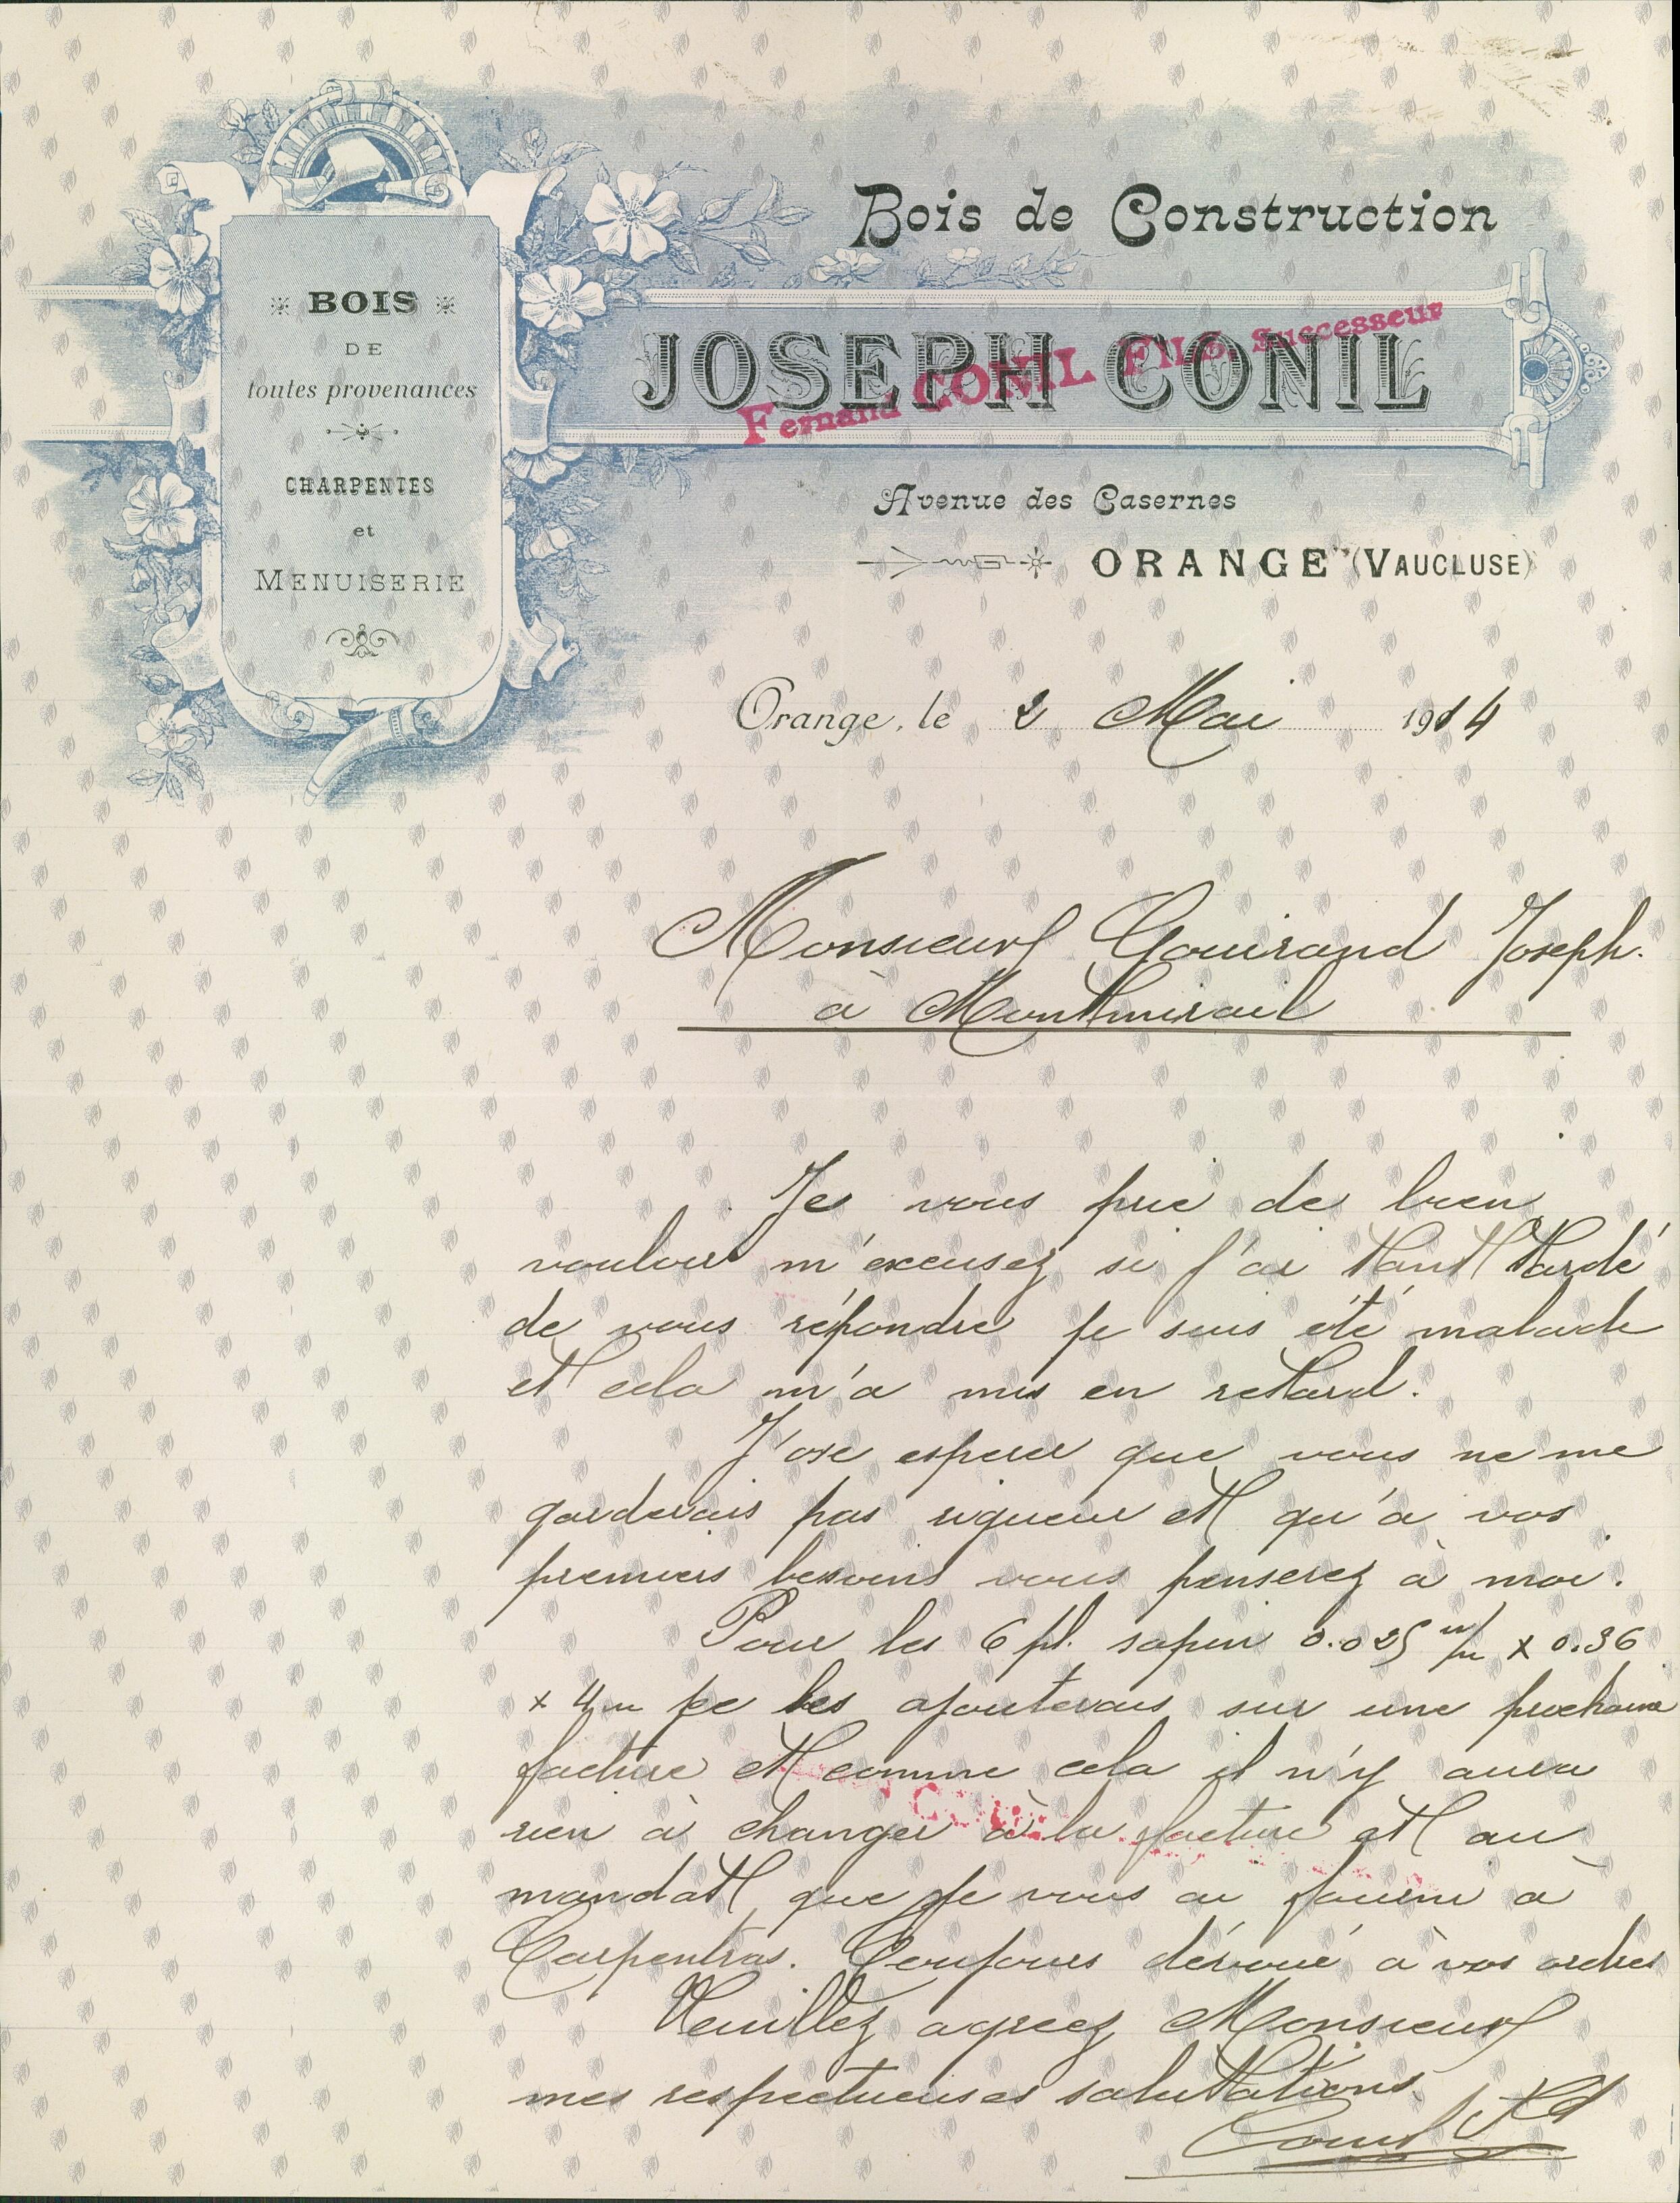 Bois de Construction
BOIS
DE
toutes provenances
CHARPENTES
et
MENUISERIE
JOSEPH CONIL
Fernand CONIL FILS, Successeur
Avenue des Casernes
ORANGE (VAUCLUSE)
Orange, le 2 Mai 1914
Monsieur Gouirand Joseph.
à Montmirail
Je vous prie de bien
vouloir m'excusez si j'ai tant tardé
de vous répondre je suis été malade
et cela m'a mis en retard.
J'ose esperer que vous ne me
garderais pas rigueur et qu'à vos
premiers besoins vous penserez à moi.
Pour les 6 pl. sapin 0.025 m/m x 0.36
x 4m je les ajouterais sur une prochaine
facture et comme cela il n'y aura
rien à changer à la facture et au
mandat que je vous ai fourni à
Carpentras. Toujours dévoué à vos ordres
Veuillez agreez Monsieur
mes respectueuses salutations.
Conil